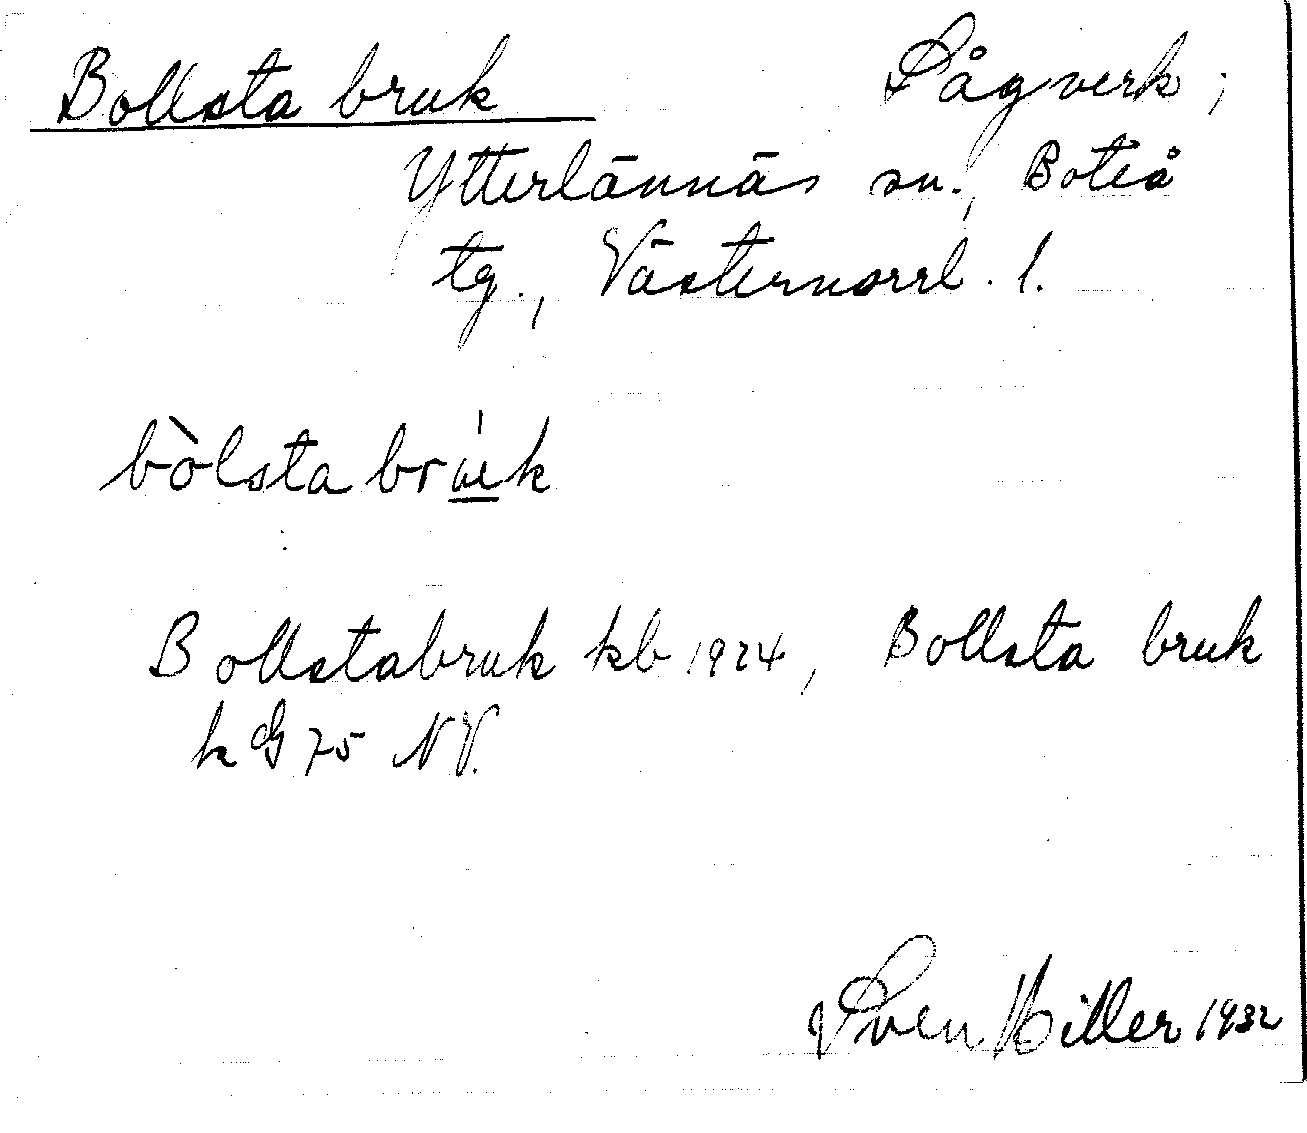 Bollsta bruk Sågverk;
Ytterlännäs sn., Boteå
tg., Västernorrl. l.
bòlsta brúk
Bollstabruk kb 1924, Bollsta bruk
k G 75 NV.
Sven Hiller 1932